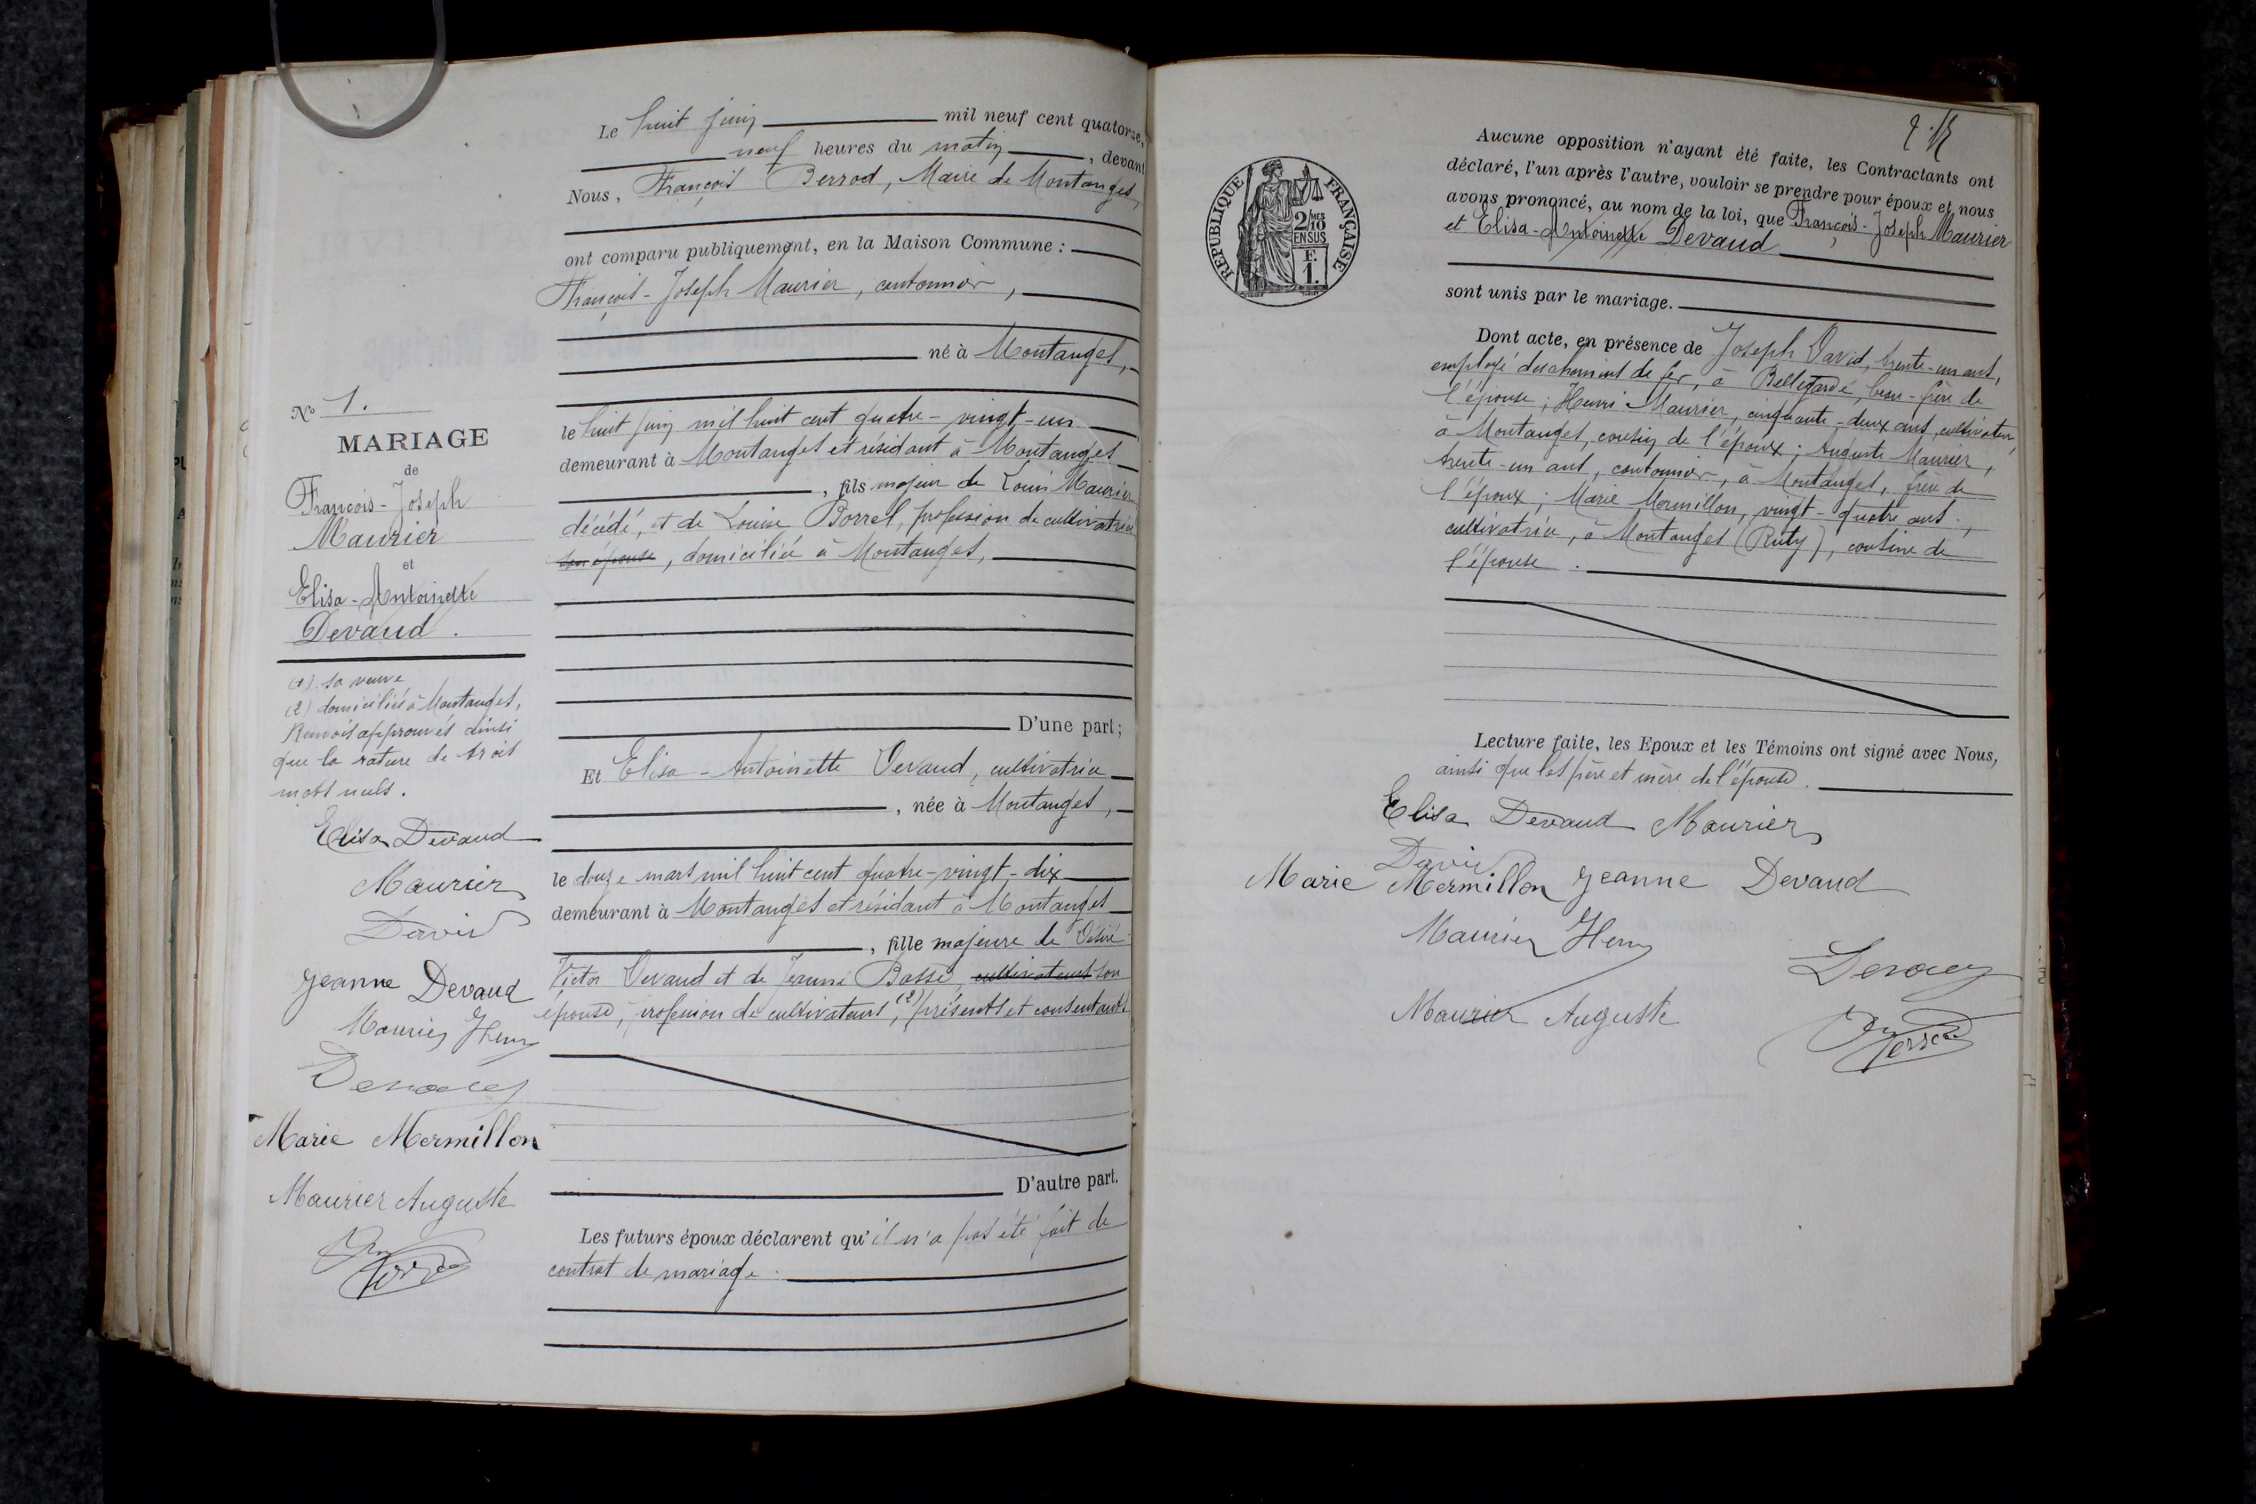 Le huit juin mil neuf cent quatorze,
neuf heures du matin, devant
Nous, François Berrod, Maire de Montanges,
ont comparu publiquement, en la Maison Commune :
François-Joseph Maurier, cantonnier,
né à Montanges,
le huit juin mil huit cent quatre-vingt-un
demeurant à Montanges et résidant à Montanges
, fils majeur de Louis Maurier
décédé, et de Louise Borrel, profession de cultivatrice
son épouse, domiciliée à Montanges,
D'une part ;
Et Elisa-Antoinette Devaud, cultivatrice
, née à Montanges,
le douze mars mil huit cent quatre-vingt-dix
demeurant à Montanges et résidant à Montanges
, fille majeure de Désiré
Victor Devaud et de Jeanne Bossé, cultivateurs son
épouse, profession de cultivateurs, (2) présents et consentants
D'autre part.
Les futurs époux déclarent qu'il n'a pas été fait de
contrat de mariage.
N° 1.
MARIAGE
de
François-Joseph
Maurier
et
Elisa-Antoinette
Devaud.
(1) sa veuve
(2) domiciliés à Montanges,
Renvois approuvés ainsi
que la rature de trois
mots nuls.
Elisa Devaud
Maurier
David
Jeanne Devaud
Maurier Henri
Marie Mermillon
Maurier Auguste
RÉPUBLIQUE FRANÇAISE
2/10 MES
EN SUS
F.
1.
Aucune opposition n'ayant été faite, les Contractants ont
déclaré, l'un après l'autre, vouloir se prendre pour époux et nous
avons prononcé, au nom de la loi, que François-Joseph Maurier
et Elisa-Antoinette Devaud
sont unis par le mariage.
Dont acte, en présence de Joseph David, trente-un ans,
employé des chemins de fer, à Bellegarde, beau-frère de
l'épouse ; Henri Maurier, cinquante-deux ans, cultivateur,
à Montanges, cousin de l'époux ; Auguste Maurier,
trente-un ans, cantonnier, à Montanges, frère de
l'époux ; Marie Mermillon, vingt-quatre ans,
cultivatrice, à Montanges (Ruty), cousine de
l'épouse.
Lecture faite, les Epoux et les Témoins ont signé avec Nous,
ainsi que les père et mère de l'épouse.
Elisa Devaud Maurier
David
Marie Mermillon Jeanne Devaud
Maurier Henri
Maurier Auguste